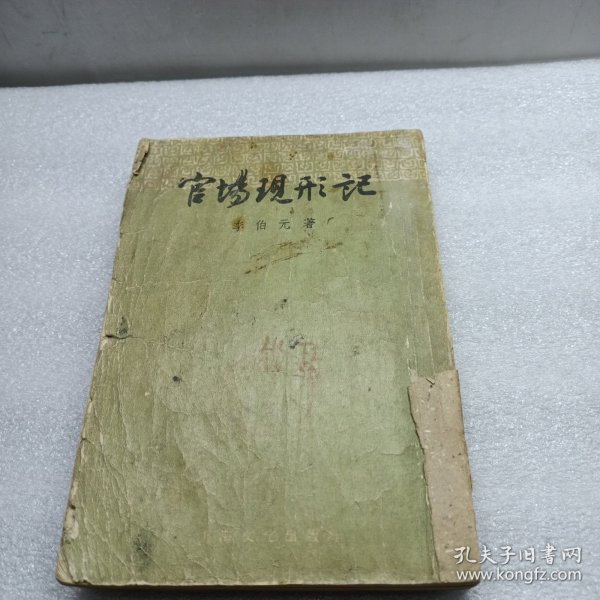 官場現形記
李伯元著
孔夫子旧书网
www.kongfz.com